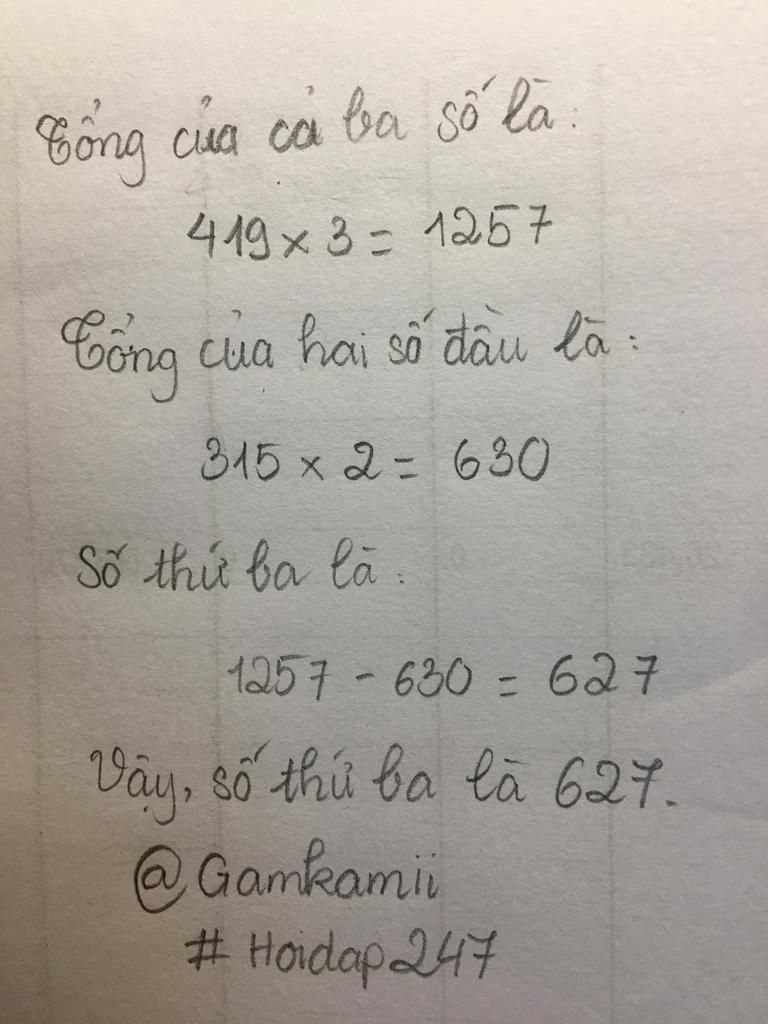 Tổng của cả ba số là:
419 × 3 = 1257
Tổng của hai số đầu là:
315 × 2 = 630
Số thứ ba là:
1257 - 630 = 627
Vậy, số thứ ba là 627.
@Gamkamii
# Hoidap247